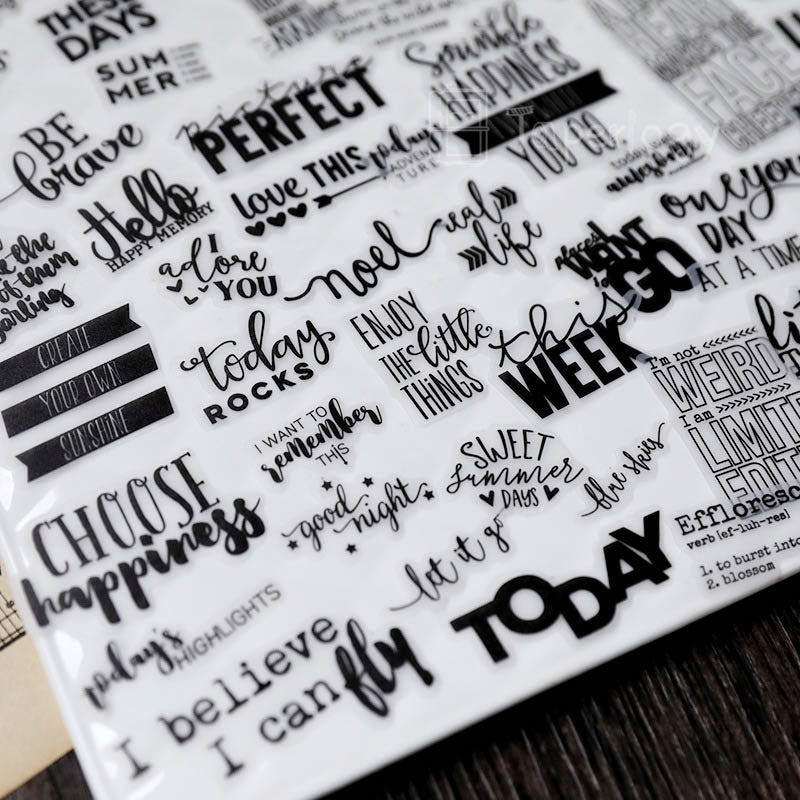 THESE
DAYS
SUM
MER
BE
brave
picture
PERFECT
Sprinkle
HAPPINESS
YOU GO
HEART
FACE
CHEEKY
Hello
HAPPY MEMORY
love THIS
today's
ADVEN
TURE
today was
awesome
one
DAY
AT A TIME
of them
darling
I
adore
YOU
noel
real
life
places I
WANT
to
GO
CREATE
YOUR OWN
SUNSHINE
today
ROCKS
ENJOY
THE little
THINGS
this
WEEK
I'm not
WEIRD
I am
LIMITED
EDITI
I WANT TO
remember
THIS
SWEET
summer
DAYS
blue skies
CHOOSE
happiness
good
night
let it go
Effloresc
verb [ef-luh-res]
1. to burst into
2. blossom
TODAY
today's
HIGHLIGHTS
I believe
I can fly